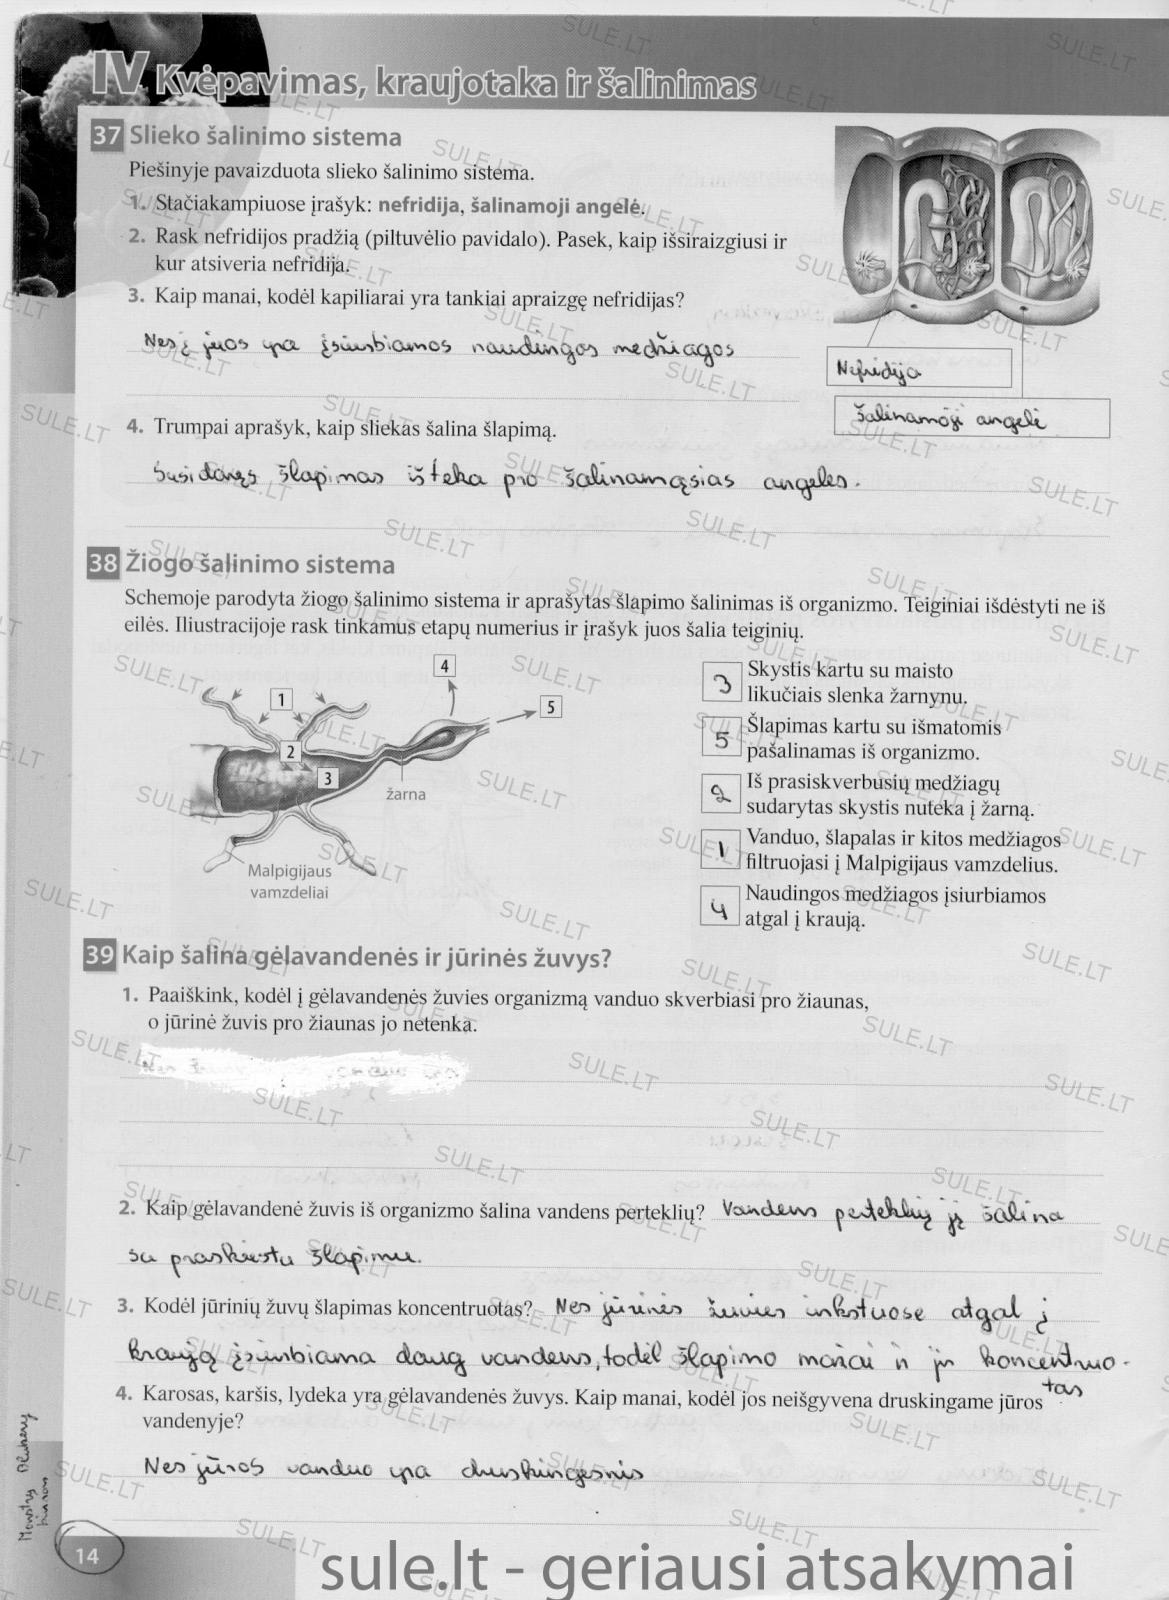 IV Kvėpavimas, kraujotaka ir šalinimas
37 Slieko šalinimo sistema
Piešinyje pavaizduota slieko šalinimo sistema.
1. Stačiakampiuose įrašyk: nefridija, šalinamoji angelė.
2. Rask nefridijos pradžią (piltuvėlio pavidalo). Pasek, kaip išsiraizgiusi ir
kur atsiveria nefridija.
3. Kaip manai, kodėl kapiliarai yra tankiai apraizgę nefridijas?
Nes į juos yra įsiurbiamos naudingos medžiagos
Nefridija
Šalinamoji angelė
4. Trumpai aprašyk, kaip sliekas šalina šlapimą.
Susidaręs šlapimas išteka pro šalinamąsias angeles.
38 Žiogo šalinimo sistema
Schemoje parodyta žiogo šalinimo sistema ir aprašytas šlapimo šalinimas iš organizmo. Teiginiai išdėstyti ne iš
eilės. Iliustracijoje rask tinkamus etapų numerius ir įrašyk juos šalia teiginių.
1
2
3
4
5
žarna
Malpigijaus
vamzdeliai
3 Skystis kartu su maisto
likučiais slenka žarnynu.
5 Šlapimas kartu su išmatomis
pašalinamas iš organizmo.
2 Iš prasiskverbusių medžiagų
sudarytas skystis nuteka į žarną.
1 Vanduo, šlapalas ir kitos medžiagos
filtruojasi į Malpigijaus vamzdelius.
4 Naudingos medžiagos įsiurbiamos
atgal į kraują.
39 Kaip šalina gėlavandenės ir jūrinės žuvys?
1. Paaiškink, kodėl į gėlavandenės žuvies organizmą vanduo skverbiasi pro žiaunas,
o jūrinė žuvis pro žiaunas jo netenka.
2. Kaip gėlavandenė žuvis iš organizmo šalina vandens perteklių? Vandens perteklių ją šalina
su praskiestu šlapimu.
3. Kodėl jūrinių žuvų šlapimas koncentruotas? Nes jūrinės žuvies inkstuose atgal į
kraują įsiurbiama daug vandens, todėl šlapimo mažai ir jis koncentruo-
tas
4. Karosas, karšis, lydeka yra gėlavandenės žuvys. Kaip manai, kodėl jos neišgyvena druskingame jūros
vandenyje?
Nes jūros vanduo yra druskingesnis
14
sule.lt - geriausi atsakymai
SULE.LT